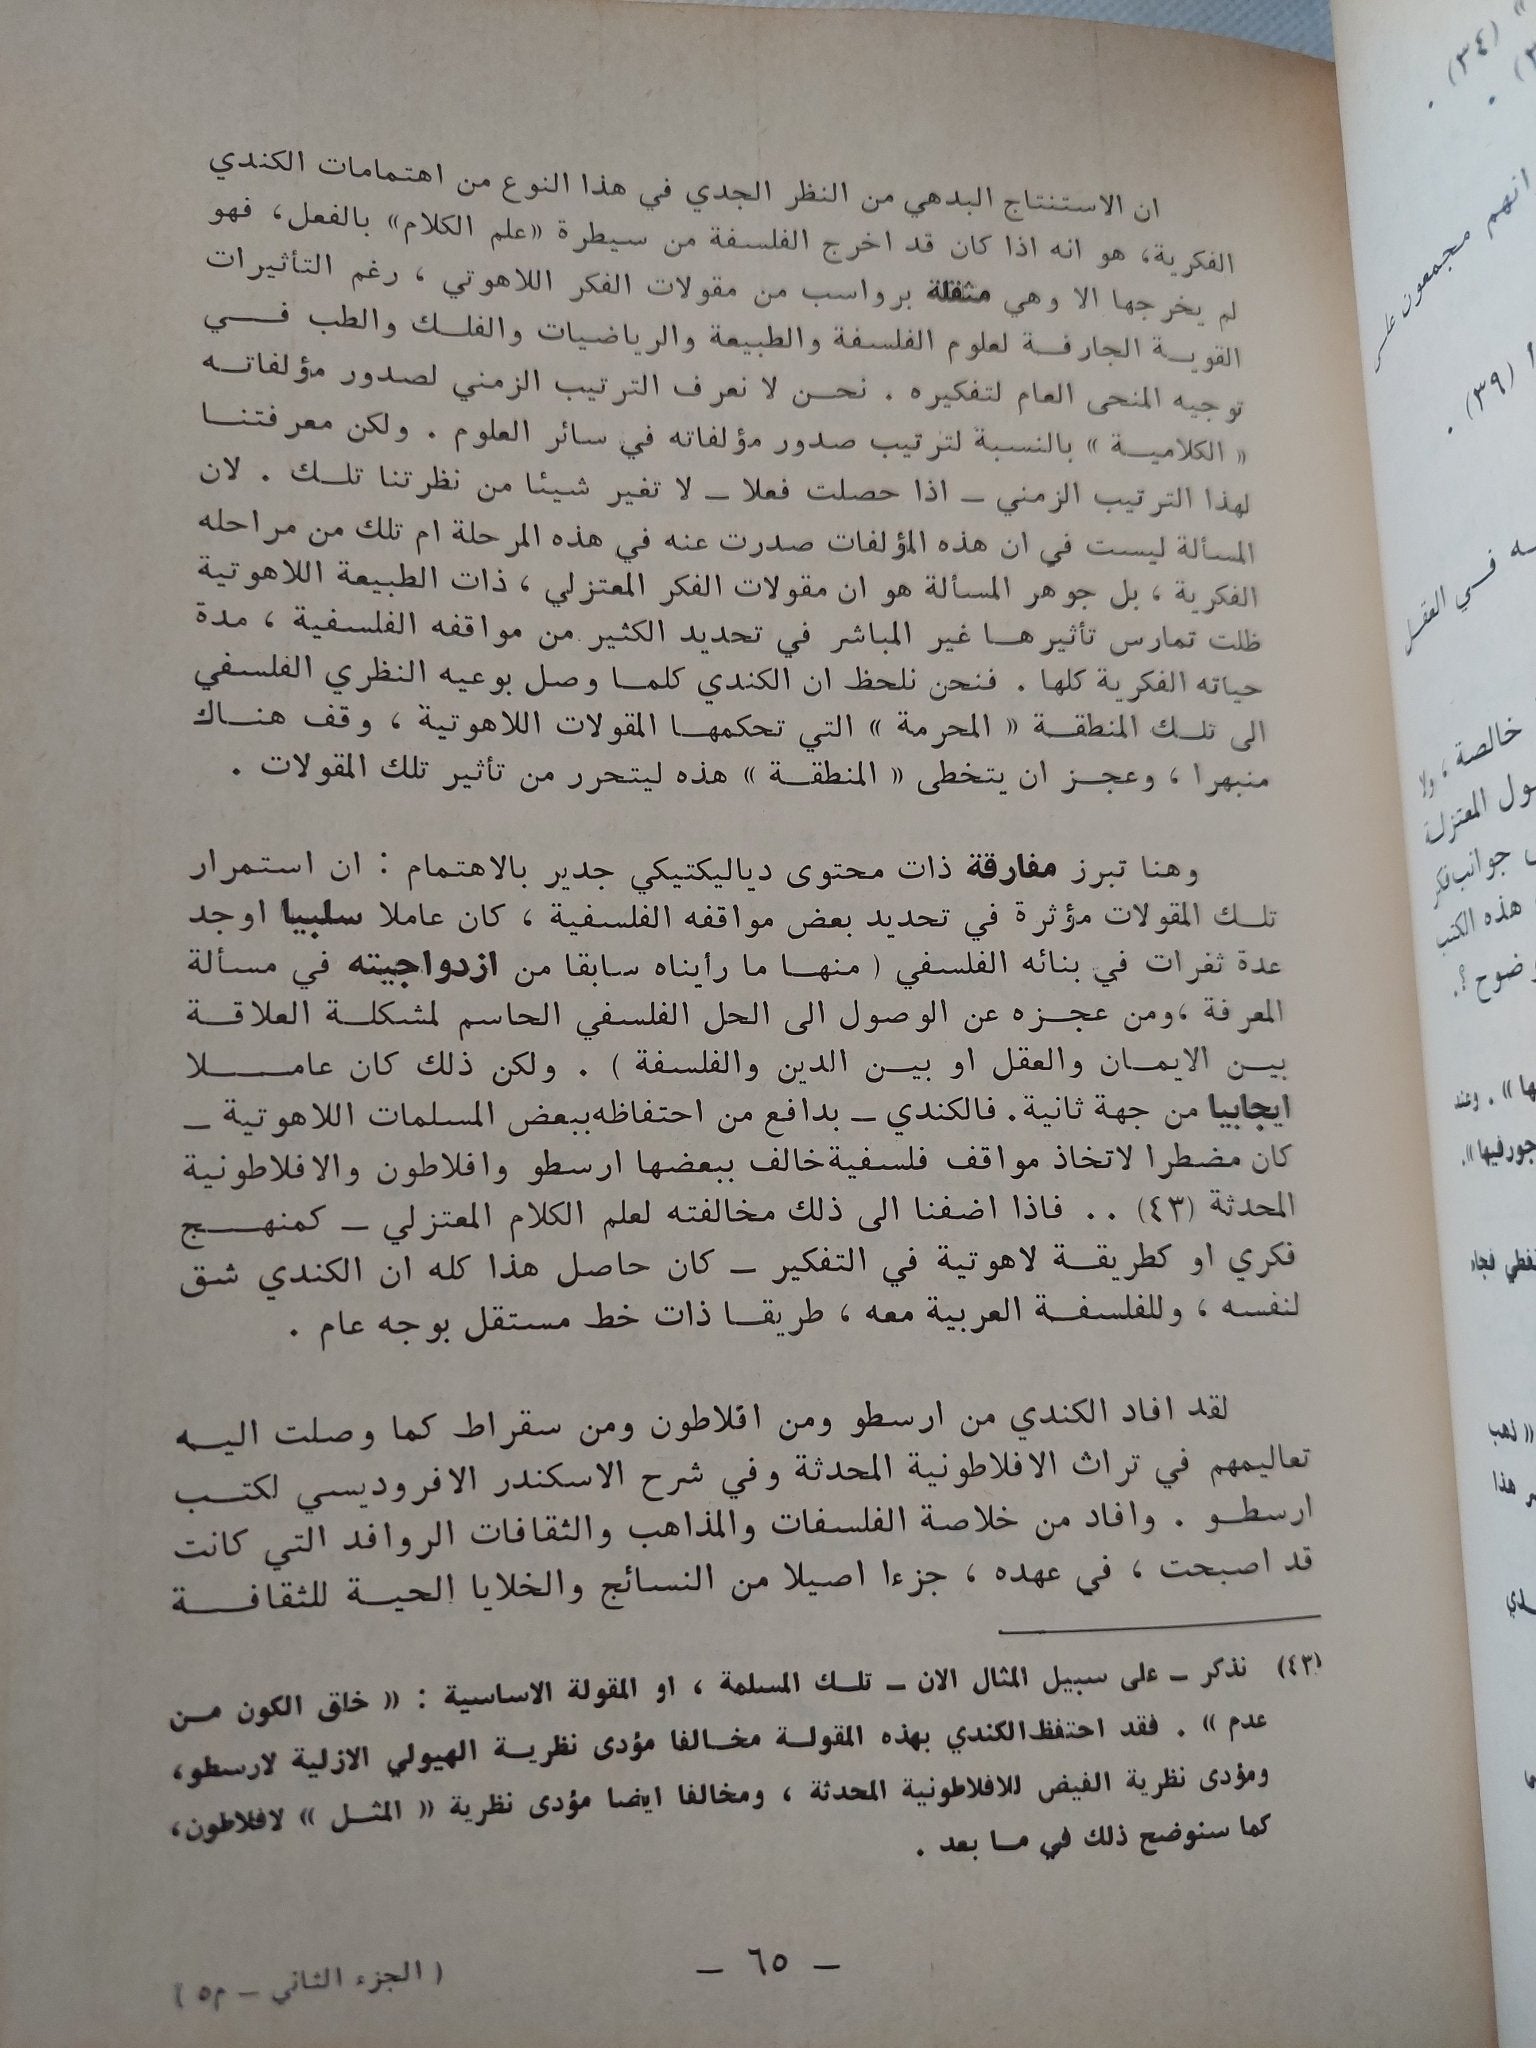 ان الاستنتاج البدهي من النظر الجدي في هذا النوع من اهتمامات الكندي
الفكرية، هو انه اذا كان قد اخرج الفلسفة من سيطرة «علم الكلام» بالفعل، فهو
لم يخرجها الا وهي مثقلة برواسب من مقولات الفكر اللاهوتي ، رغم التأثيرات
القوية الجارفة لعلوم الفلسفة والطبيعة والرياضيات والفلك والطب في
توجيه المنحى العام لتفكيره . نحن لا نعرف الترتيب الزمني لصدور مؤلفاته
« الكلامية » بالنسبة لترتيب صدور مؤلفاته في سائر العلوم . ولكن معرفتنا
لهذا الترتيب الزمني – اذا حصلت فعلا – لا تغير شيئا من نظرتنا تلك . لان
المسألة ليست في ان هذه المؤلفات صدرت عنه في هذه المرحلة ام تلك من مراحله
الفكرية ، بل جوهر المسألة هو ان مقولات الفكر المعتزلي ، ذات الطبيعة اللاهوتية
ظلت تمارس تأثيرها غير المباشر في تحديد الكثير من مواقفه الفلسفية ، مدة
حياته الفكرية كلها . فنحن نلحظ ان الكندي كلما وصل بوعيه النظري الفلسفي
الى تلك المنطقة « المحرمة » التي تحكمها المقولات اللاهوتية ، وقف هناك
منبهرا ، وعجز ان يتخطى « المنطقة » هذه ليتحرر من تأثير تلك المقولات .
وهنا تبرز مفارقة ذات محتوى دياليكتيكي جدير بالاهتمام : ان استمرار
تلك المقولات مؤثرة في تحديد بعض مواقفه الفلسفية ، كان عاملا سلبيا اوجد
عدة ثغرات في بنائه الفلسفي ( منها ما رأيناه سابقا من ازدواجيته في مسألة
المعرفة ،ومن عجزه عن الوصول الى الحل الفلسفي الحاسم لمشكلة العلاقة
بين الايمان والعقل او بين الدين والفلسفة ) . ولكن ذلك كان عاملا
ايجابيا من جهة ثانية. فالكندي – بدافع من احتفاظه ببعض المسلمات اللاهوتية –
كان مضطرا لاتخاذ مواقف فلسفية خالف ببعضها ارسطو وافلاطون والافلاطونية
المحدثة (٤٣) .. فاذا اضفنا الى ذلك مخالفته لعلم الكلام المعتزلي – كمنهج
فكري او كطريقة لاهوتية في التفكير – كان حاصل هذا كله ان الكندي شق
لنفسه ، وللفلسفة العربية معه ، طريقا ذات خط مستقل بوجه عام .
لقد افاد الكندي من ارسطو ومن افلاطون ومن سقراط كما وصلت اليه
تعاليمهم في تراث الافلاطونية المحدثة وفي شرح الاسكندر الافروديسي لكتب
ارسطو . وافاد من خلاصة الفلسفات والمذاهب والثقافات الروافد التي كانت
قد اصبحت ، في عهده ، جزءا اصيلا من النسائج والخلايا الحية للثقافة
(٤٣) نذكر – على سبيل المثال الان – تلك المسلمة ، او المقولة الاساسية : « خلق الكون من
عدم » . فقد احتفظ الكندي بهذه المقولة مخالفا مؤدى نظرية الهيولي الازلية لارسطو،
ومؤدى نظرية الفيض للافلاطونية المحدثة ، ومخالفا ايضا مؤدى نظرية « المثل » لافلاطون،
كما سنوضح ذلك في ما بعد .
– ٦٥ –
( الجزء الثاني – م٥ )
(٣٤) .
انهم مجمعون على
(٣٩) .
في العقل
خالصة ، ولا
المعتزلة
هذه الكتب